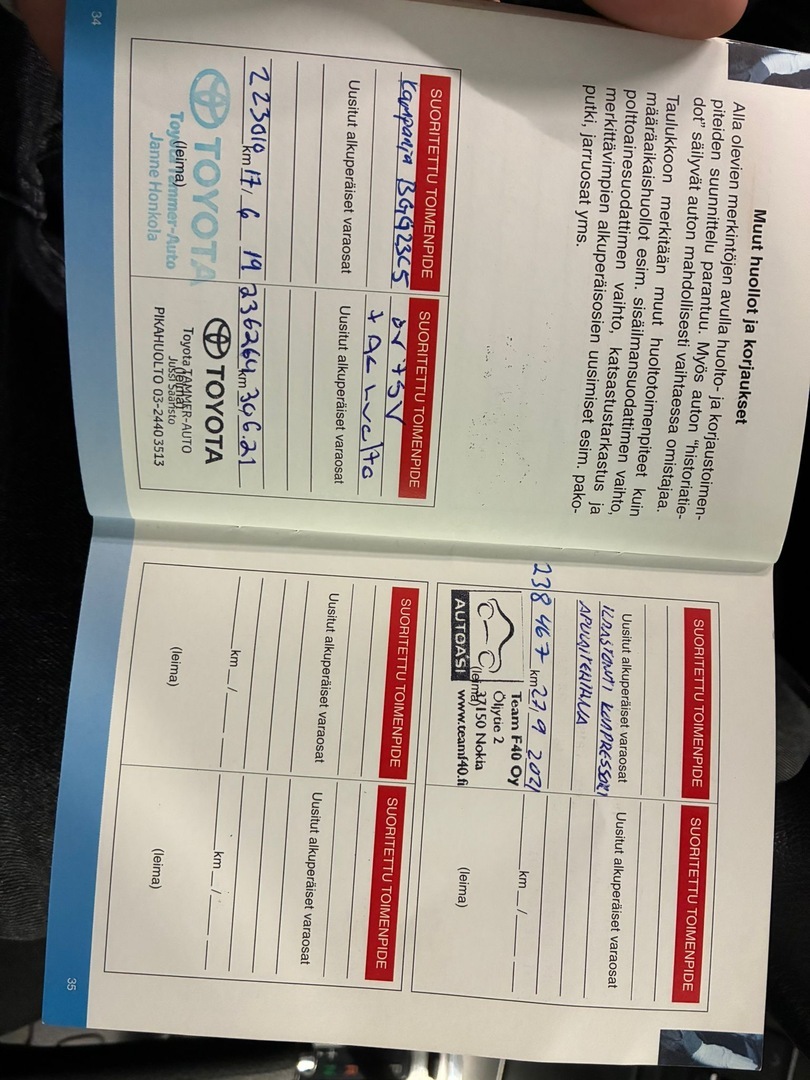 Muut huollot ja korjaukset
Alla olevien merkintöjen avulla huolto- ja korjaustoimen-
piteiden suunnittelu parantuu. Myös auton "historiatie-
dot" säilyvät auton mahdollisesti vaihtaessa omistajaa.
Taulukkoon merkitään muut huoltotoimenpiteet kuin
määräaikaishuollot esim. sisäilmansuodattimen vaihto,
polttoainesuodattimen vaihto, katsastustarkastus ja
merkittävimpien alkuperäisosien uusimiset esim. pako-
putki, jarruosat yms.
SUORITETTU TOIMENPIDE
Kampanja BGG23C5
Uusitut alkuperäiset varaosat
223019 km 17/6 19
TOYOTA
Toyota Tammer-Auto
(leima)
Janne Honkola
SUORITETTU TOIMENPIDE
+ AC huolto
Uusitut alkuperäiset varaosat
236264 km 30.6.21
TOYOTA
Toyota TAMMER-AUTO
(leima)
Jussi Saaristo
PIKAHUOLTO 03-2440 3513
34
SUORITETTU TOIMENPIDE
Uusitut alkuperäiset varaosat
ILMASTOINTI KOMPRESSORI
APULAITEHIHNA
238 467 km 27 9 2021
Team F40 Oy
Öljytie 2
(leima) 37150 Nokia
AUTOASI www.teamf40.fi
SUORITETTU TOIMENPIDE
Uusitut alkuperäiset varaosat
km _ / _ _
(leima)
SUORITETTU TOIMENPIDE
Uusitut alkuperäiset varaosat
km _ / _ _
(leima)
SUORITETTU TOIMENPIDE
Uusitut alkuperäiset varaosat
km _ / _ _
(leima)
35